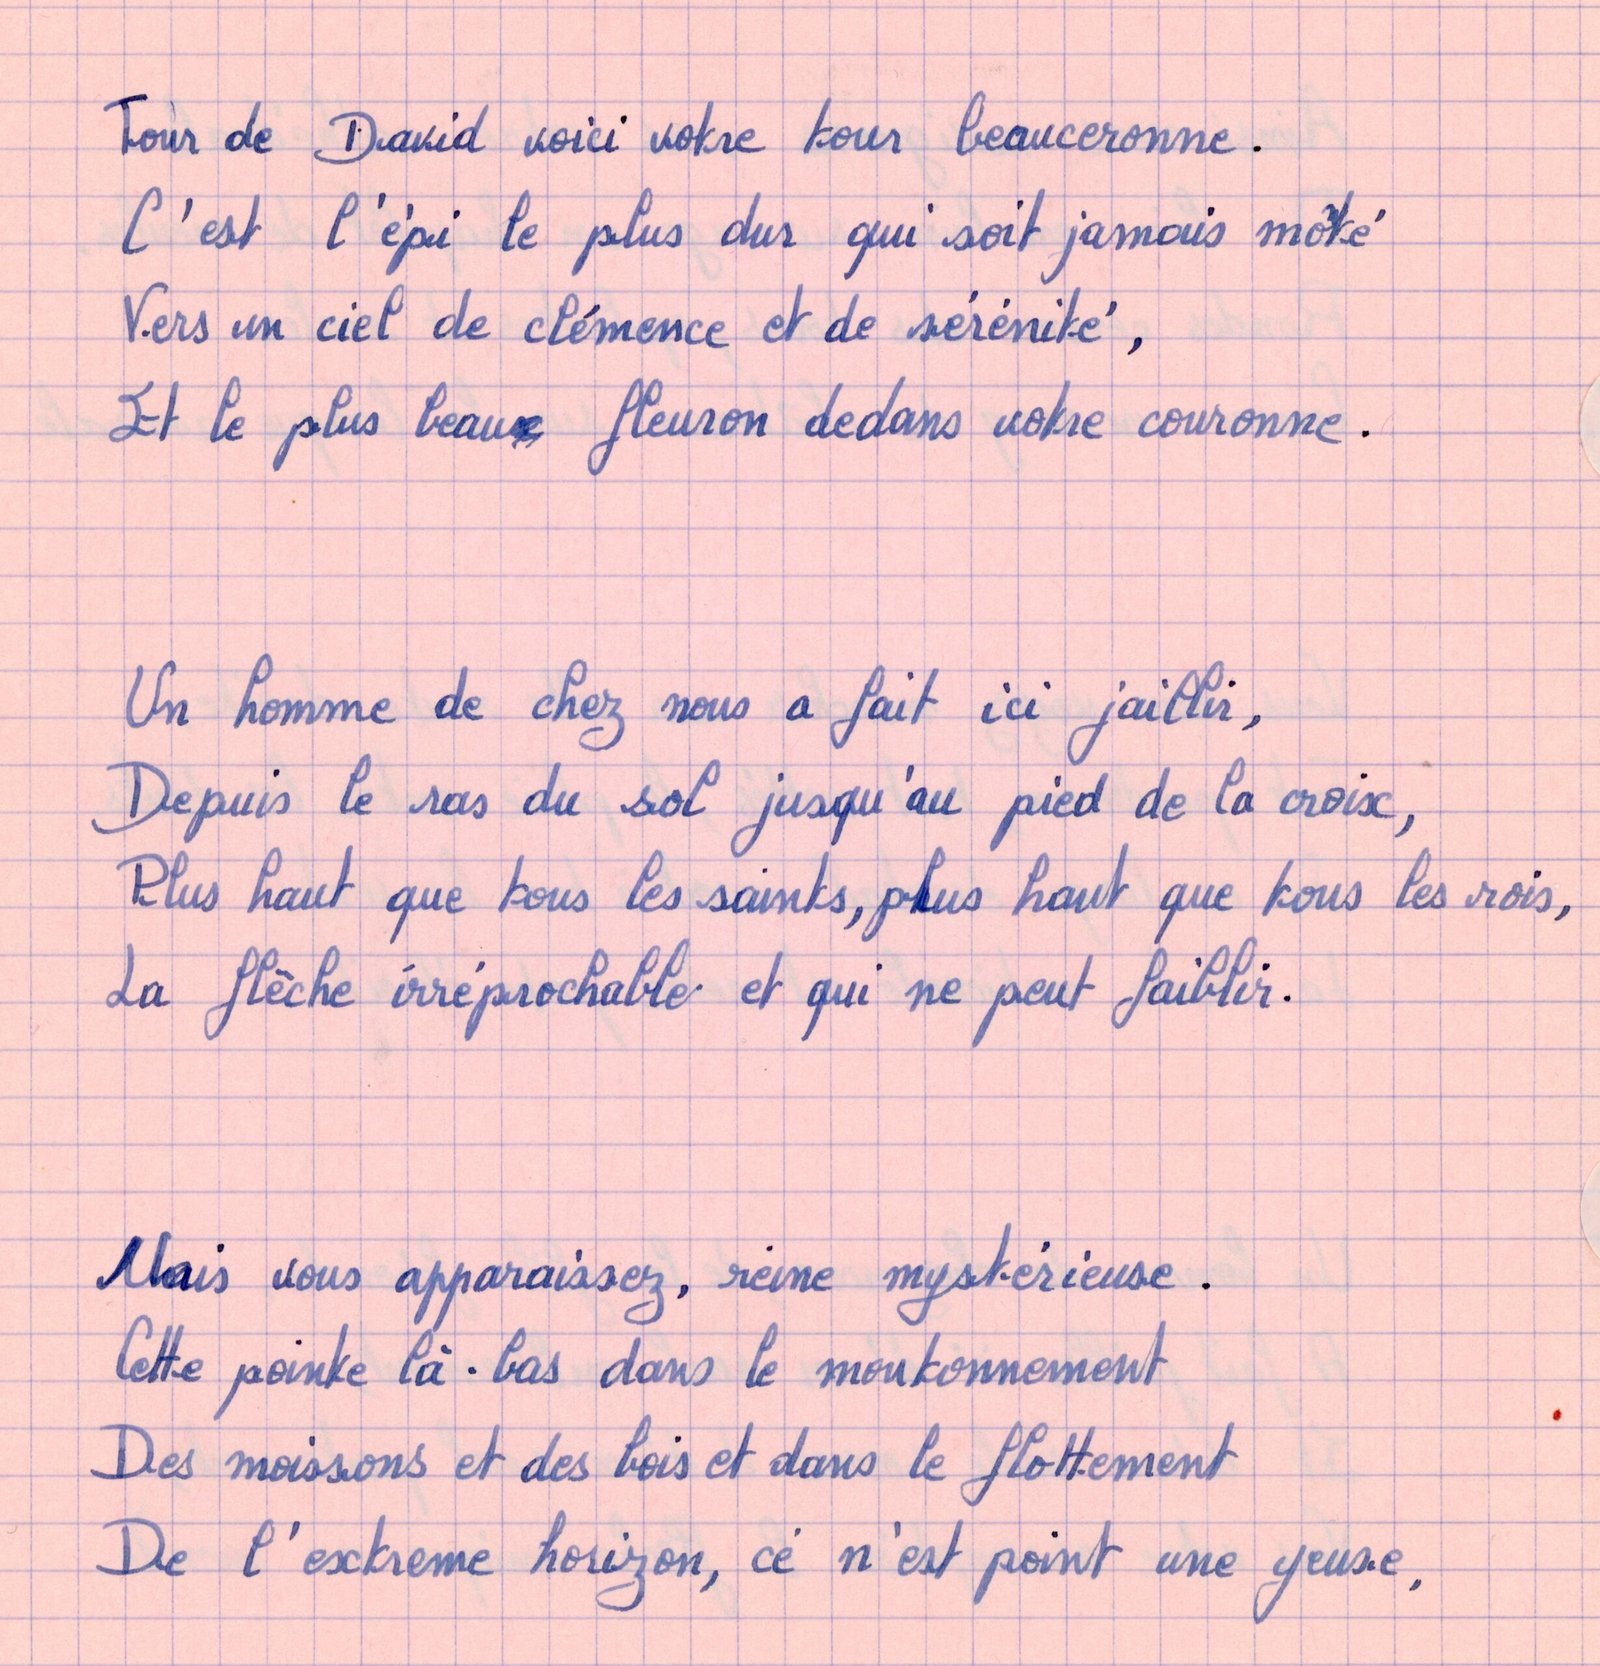 Tour de David voici votre tour beauceronne.
C'est l'épi le plus dur qui soit jamais môté
Vers un ciel de clémence et de sérénité,
Et le plus beau fleuron dedans votre couronne.
Un homme de chez nous a fait ici jaillir,
Depuis le ras du sol jusqu'au pied de la croix,
Plus haut que tous les saints, plus haut que tous les rois,
La flèche irréprochable et qui ne peut faiblir.
Mais vous apparaissez, reine mystérieuse.
Cette pointe là-bas dans le moutonnement
Des moissons et des bois et dans le flottement
De l'extreme horizon, ce n'est point une yeuse,